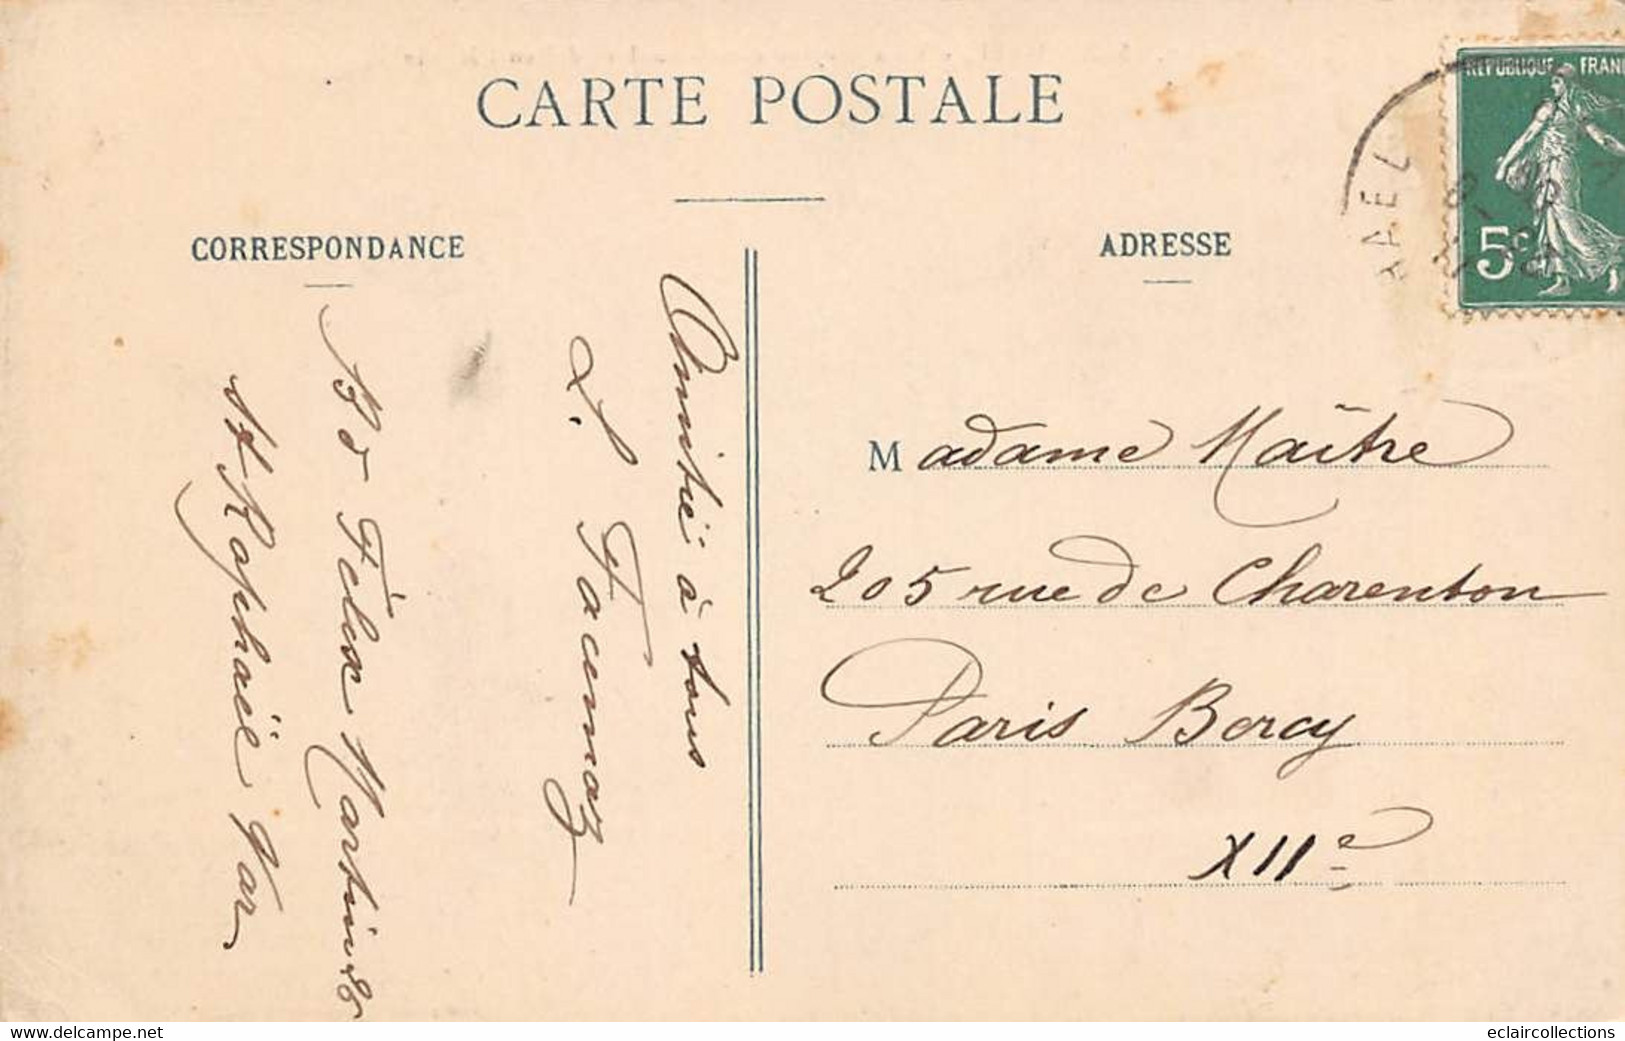 CARTE POSTALE
CORRESPONDANCE
Amitié à tous
L. Facemaz
Bd Félix Martin
St Raphaël Var
ADRESSE
REPUBLIQUE FRAN
5c
RAEL
Madame Maître
205 rue de Charenton
Paris Bercy
XIIe
https://www.delcampe.net
eclaircollections